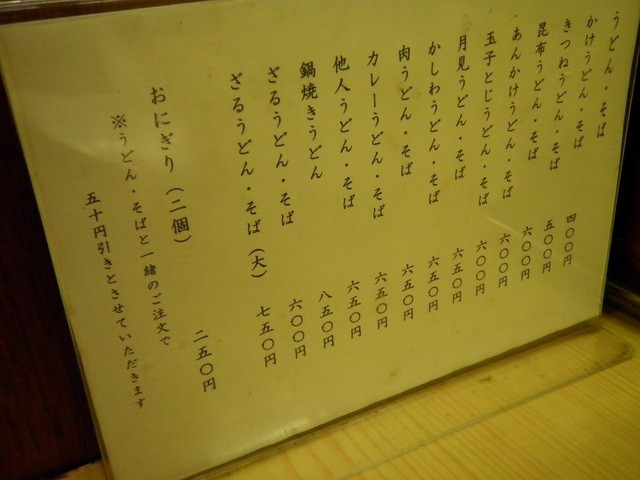 うどん・そば
かけうどん・そば 四〇〇円
きつねうどん・そば 五〇〇円
昆布うどん・そば 六〇〇円
あんかけうどん・そば 六〇〇円
玉子とじうどん・そば 六〇〇円
月見うどん・そば 六五〇円
かしわうどん・そば 六五〇円
肉うどん・そば 六五〇円
カレーうどん・そば 六五〇円
他人うどん・そば 六五〇円
鍋焼きうどん 八五〇円
ざるうどん・そば 六〇〇円
ざるうどん・そば（大） 七五〇円
おにぎり（二個） 二五〇円
※うどん・そばと一緒のご注文で
五十円引きとさせていただきます